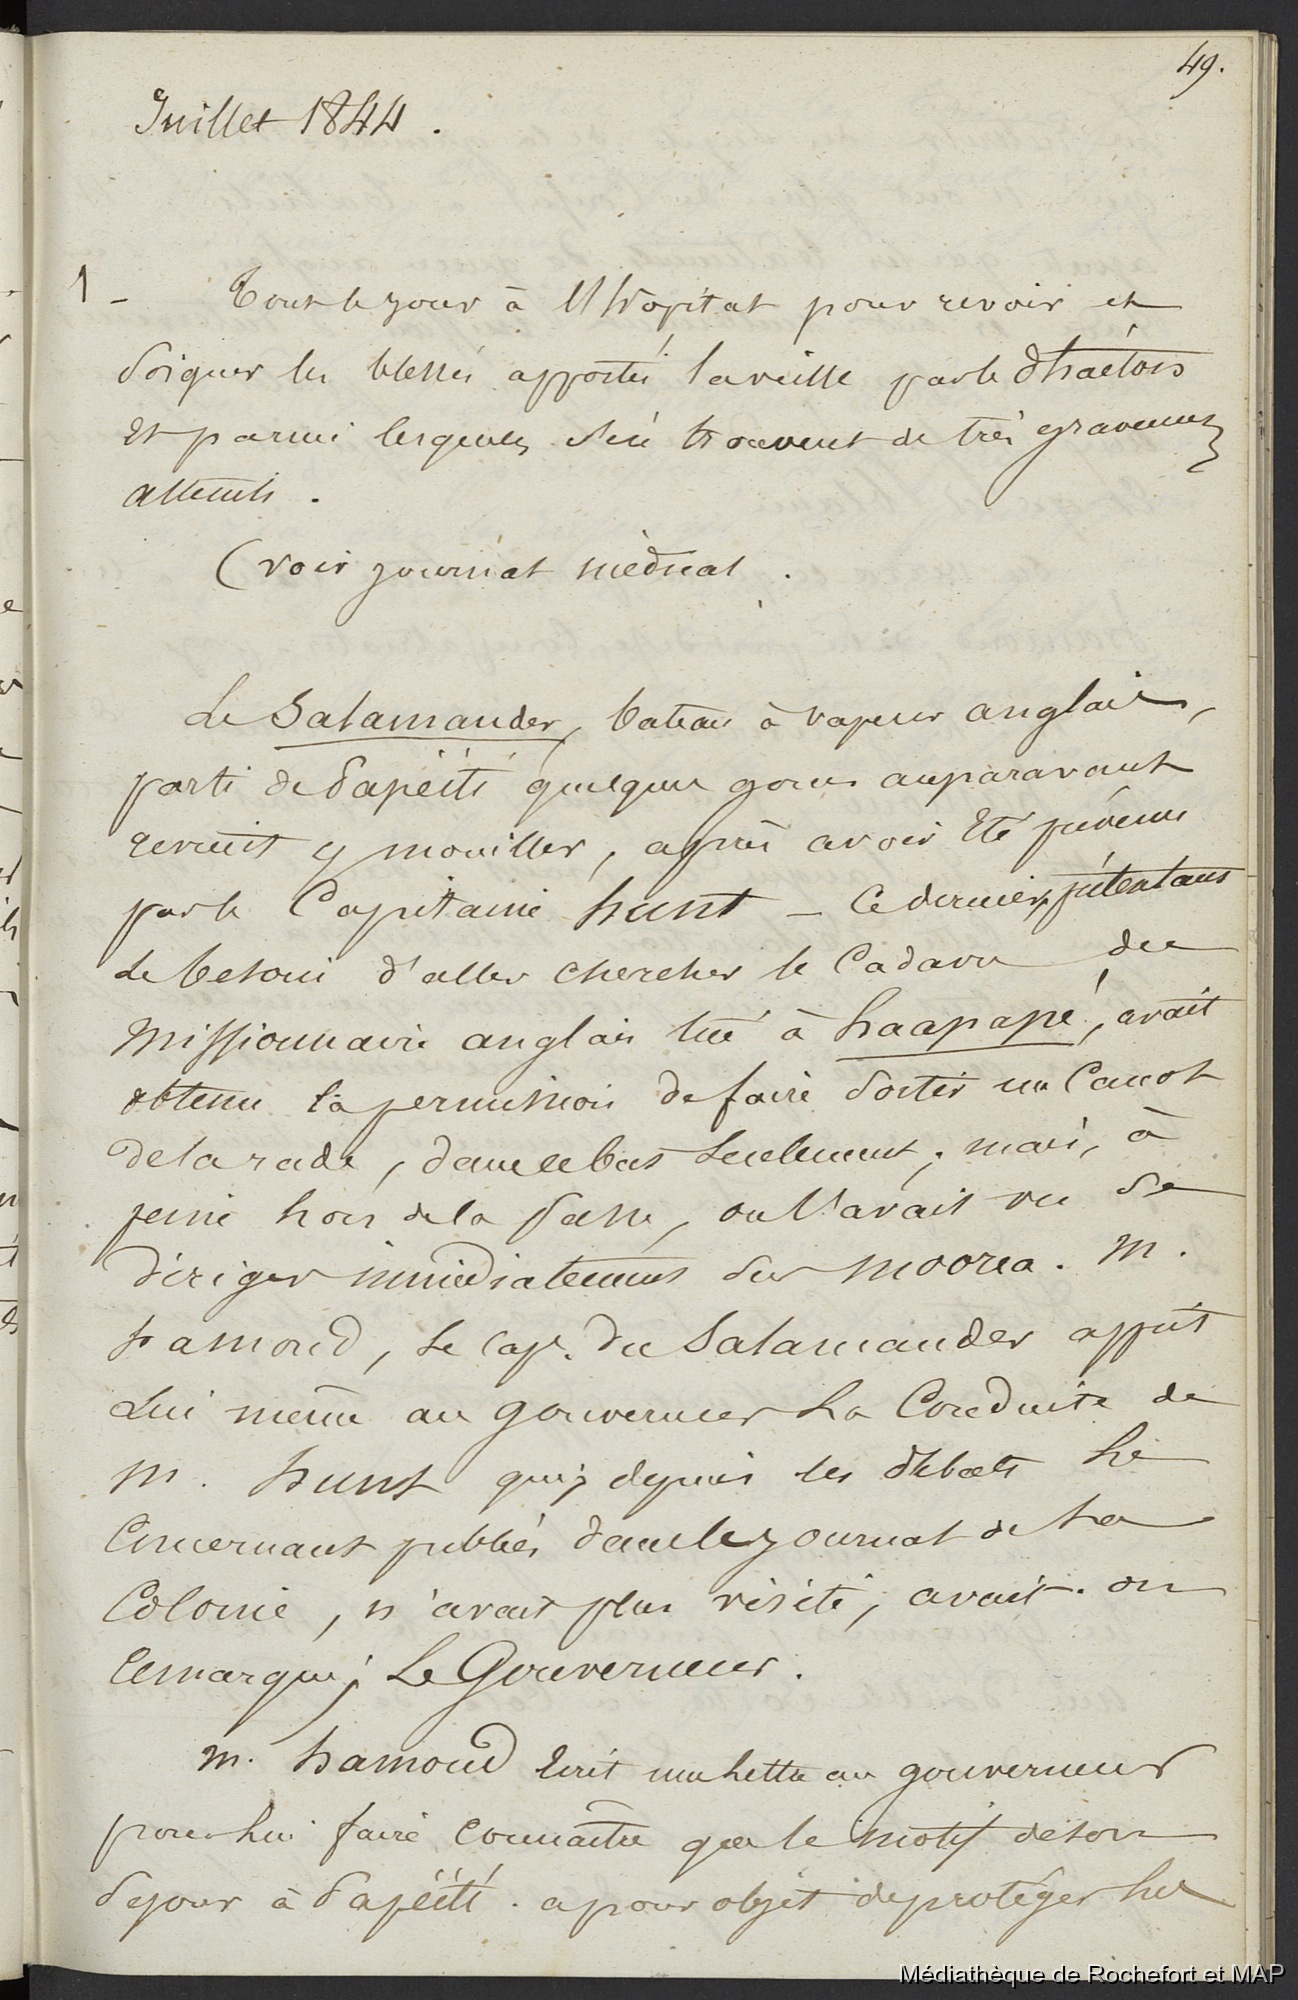 49.
Juillet 1844.
1 - Tout le jour à l'hôpital pour revoir et
soigner les blessés apportés la veille par le Phaéton
et parmi lesquels s'en trouvent de très gravement
atteints.
(voir journal médical.
Le Salamander, bateau à vapeur anglais,
parti de Papéiti quelques jours auparavant
revient y mouiller, après avoir été prévenu
par le Capitaine hunt - Ce dernier, prétextant
le besoin d'aller chercher le Cadavre du
Missionnaire anglais tué à haapapé, avait
obtenu la permission de faire sortir un Canot
de la rade, dans ce but seulement; mais, à
peine hors de la passe, on l'avait vu se
diriger immédiatement sur Moorea. M.
hamond, le Cap. du Salamander apprit
lui même au gouverneur la Conduite de
M. hunt qui, depuis les débats le
Concernant publiés dans le journal de la
Colonie, n'avait plus visité, avait-on
remarqué, Le Gouverneur.
M. hamond écrit une lettre au gouverneur
pour lui faire connaître que le motif de son
séjour à Papéiti. a pour objet de protéger les
Médiathèque de Rochefort et MAP